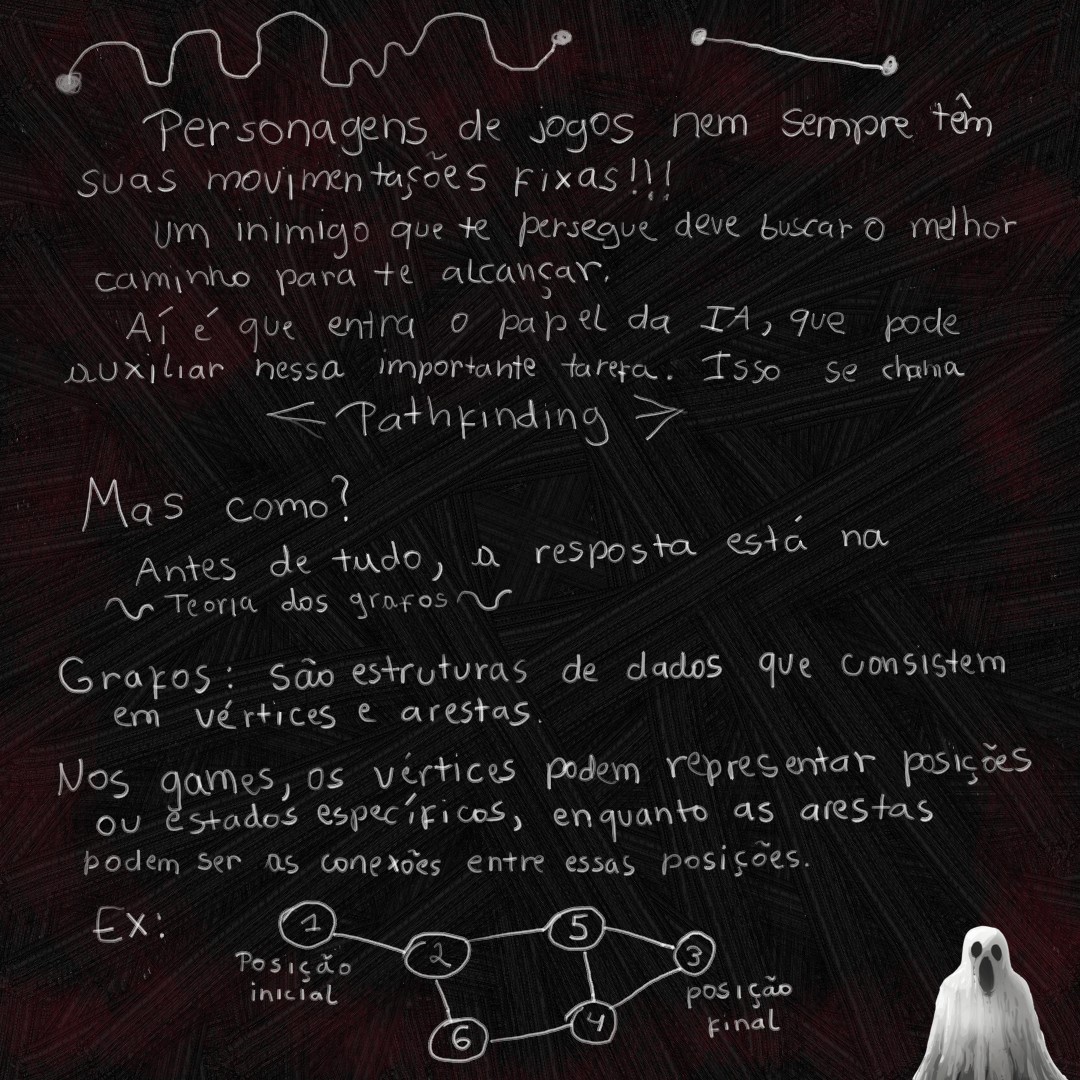 Personagens de jogos nem sempre têm
suas movimentações fixas!!!
Um inimigo que te persegue deve buscar o melhor
caminho para te alcançar.
Aí é que entra o papel da IA, que pode
auxiliar nessa importante tarefa. Isso se chama
< Pathfinding >
Mas como?
Antes de tudo, a resposta está na
~ Teoria dos grafos ~
Grafos: são estruturas de dados que consistem
em vértices e arestas.
Nos games, os vértices podem representar posições
ou estados específicos, enquanto as arestas
podem ser as conexões entre essas posições.
Ex:
1
2
5
3
Posição
inicial
posição
final
6
4